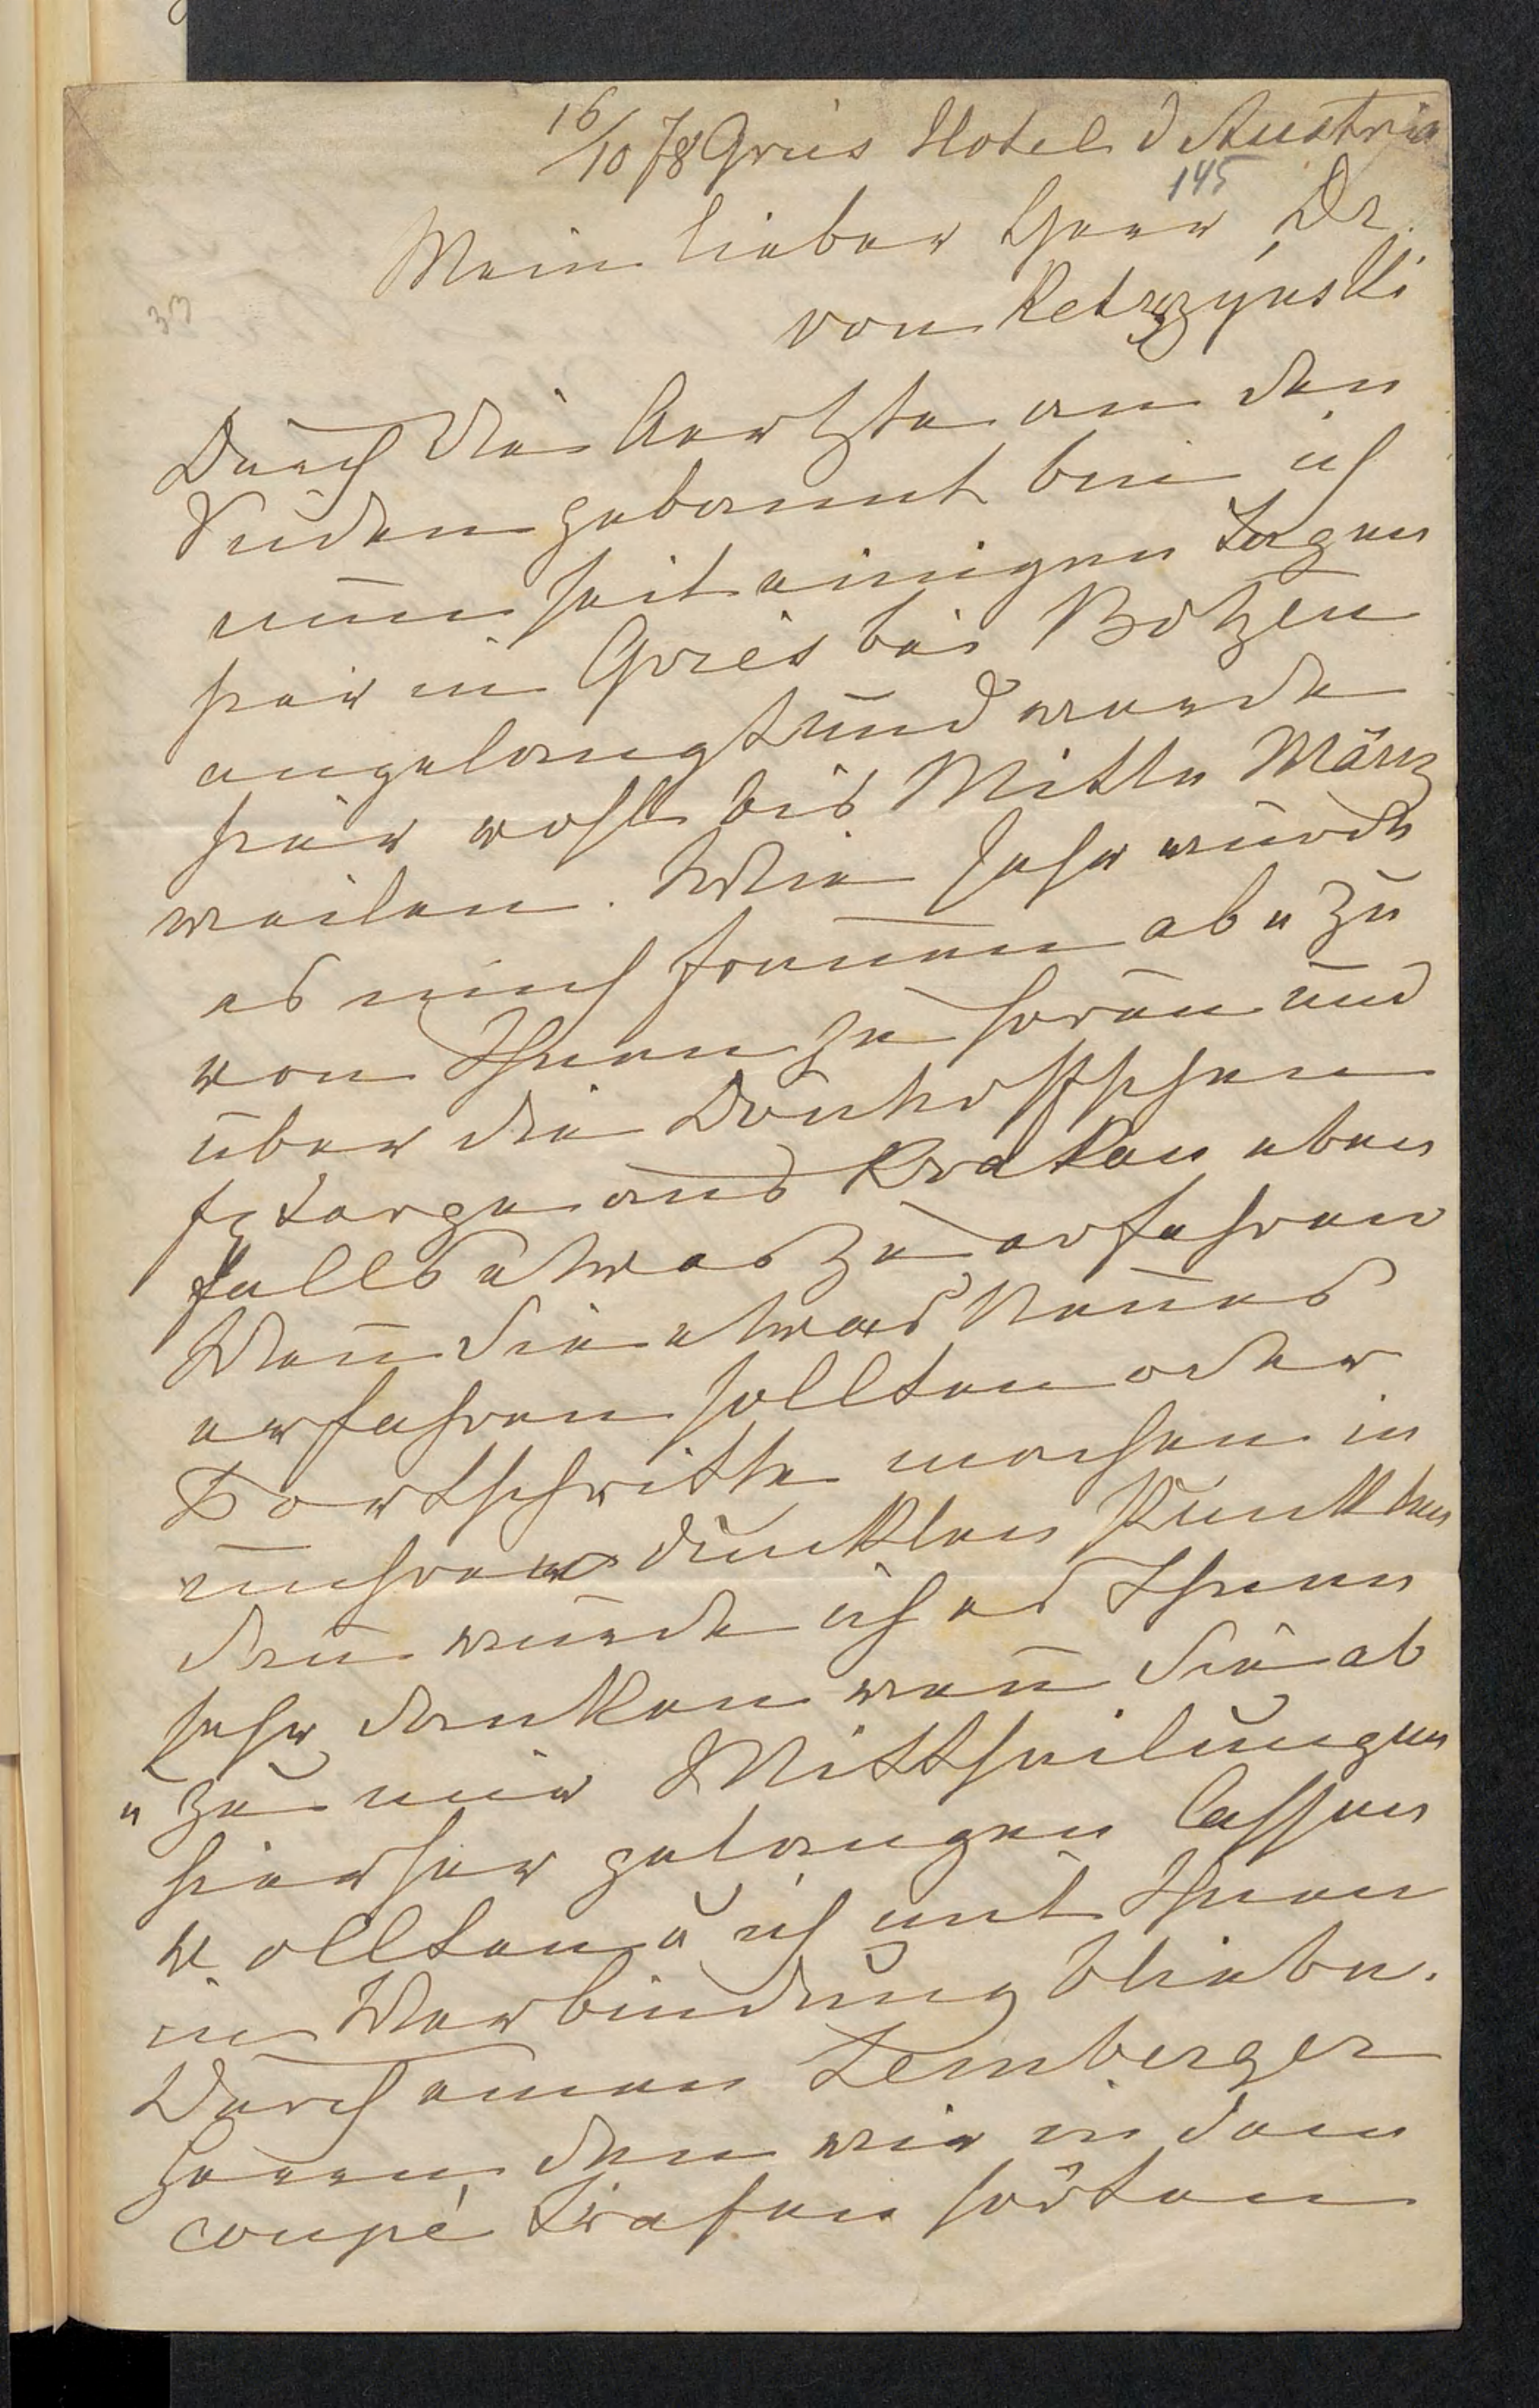 16/10 78 Gries Hotel d Austria
145
Mein lieber Herr Dr.
von Ketrzynski
33
Durch die Aerzte an den
Süden gebannt bin ich
nun seit einigen Tagen
hier in Gries bei Botzen
angelangt und werde
hier wohl bis Mitte März
weilen. Wie sehr würde
es mich freuen ab u zu
von Ihnen zu hören und
über die Dönhoffschen
aus Krakau eben
falls etwas zu erfahren
Wenn Sie etwas Neues
erfahren sollten oder
Fortschritte machen in
unseren dunklen Punkten
dann würde ich es Ihnen
sehr danken wenn Sie ab
u zu mir Mittheilungen
hierher gelangen lassen
wollten u ich mit Ihnen
in Verbindung bliebe.
Durch einen Lemberger
Herrn den wir in dem
coupé trafen hörten